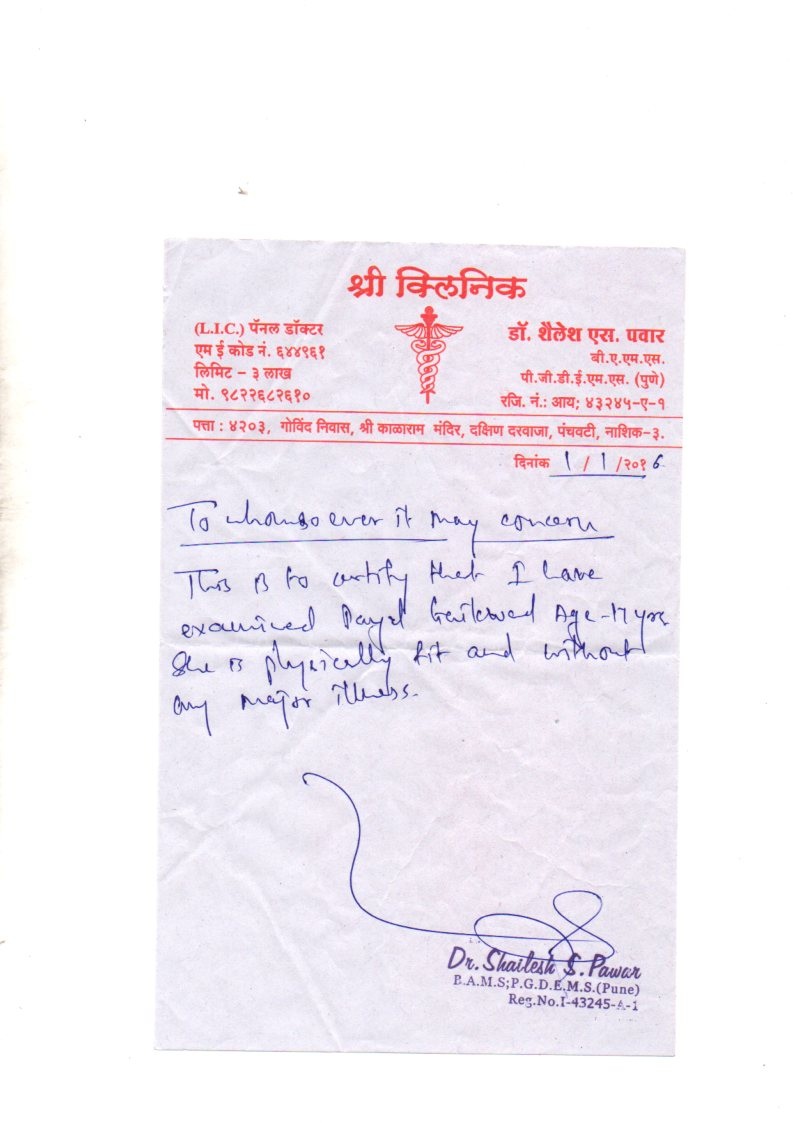 श्री क्लिनिक
(L.I.C.) पॅनल डॉक्टर
एम ई कोड नं. ६४४९६१
लिमिट - ३ लाख
मो. ९८२२६८२६१०
डॉ. शैलेश एस. पवार
बी.ए.एम.एस.
पी.जी.डी.ई.एम.एस. (पुणे)
रजि. नं.: आय; ४३२४५-ए-१
पत्ता : ४२०३, गोविंद निवास, श्री काळाराम मंदिर, दक्षिण दरवाजा, पंचवटी, नाशिक-३.
दिनांक 1 / 1 /२०१6
To whomsoever it may concern
This is to certify that I have
examined Payal Gaikwad Age-17 yrs
She is physically fit and without
any major illness.
Dr. Shailesh S. Pawar
B.A.M.S;P.G.D.E.M.S.(Pune)
Reg.No.I-43245-A-1